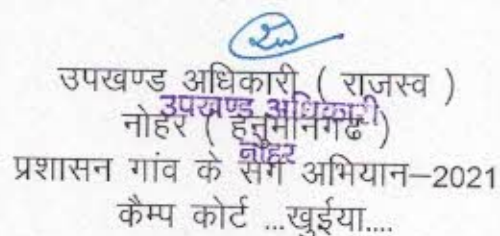 उपखण्ड अधिकारी ( राजस्व )
उपखण्ड अधिकारी
नोहर ( हनुमानगढ )
नोहर
प्रशासन गांव के संग अभियान–2021
कैम्प कोर्ट ...खुईया....